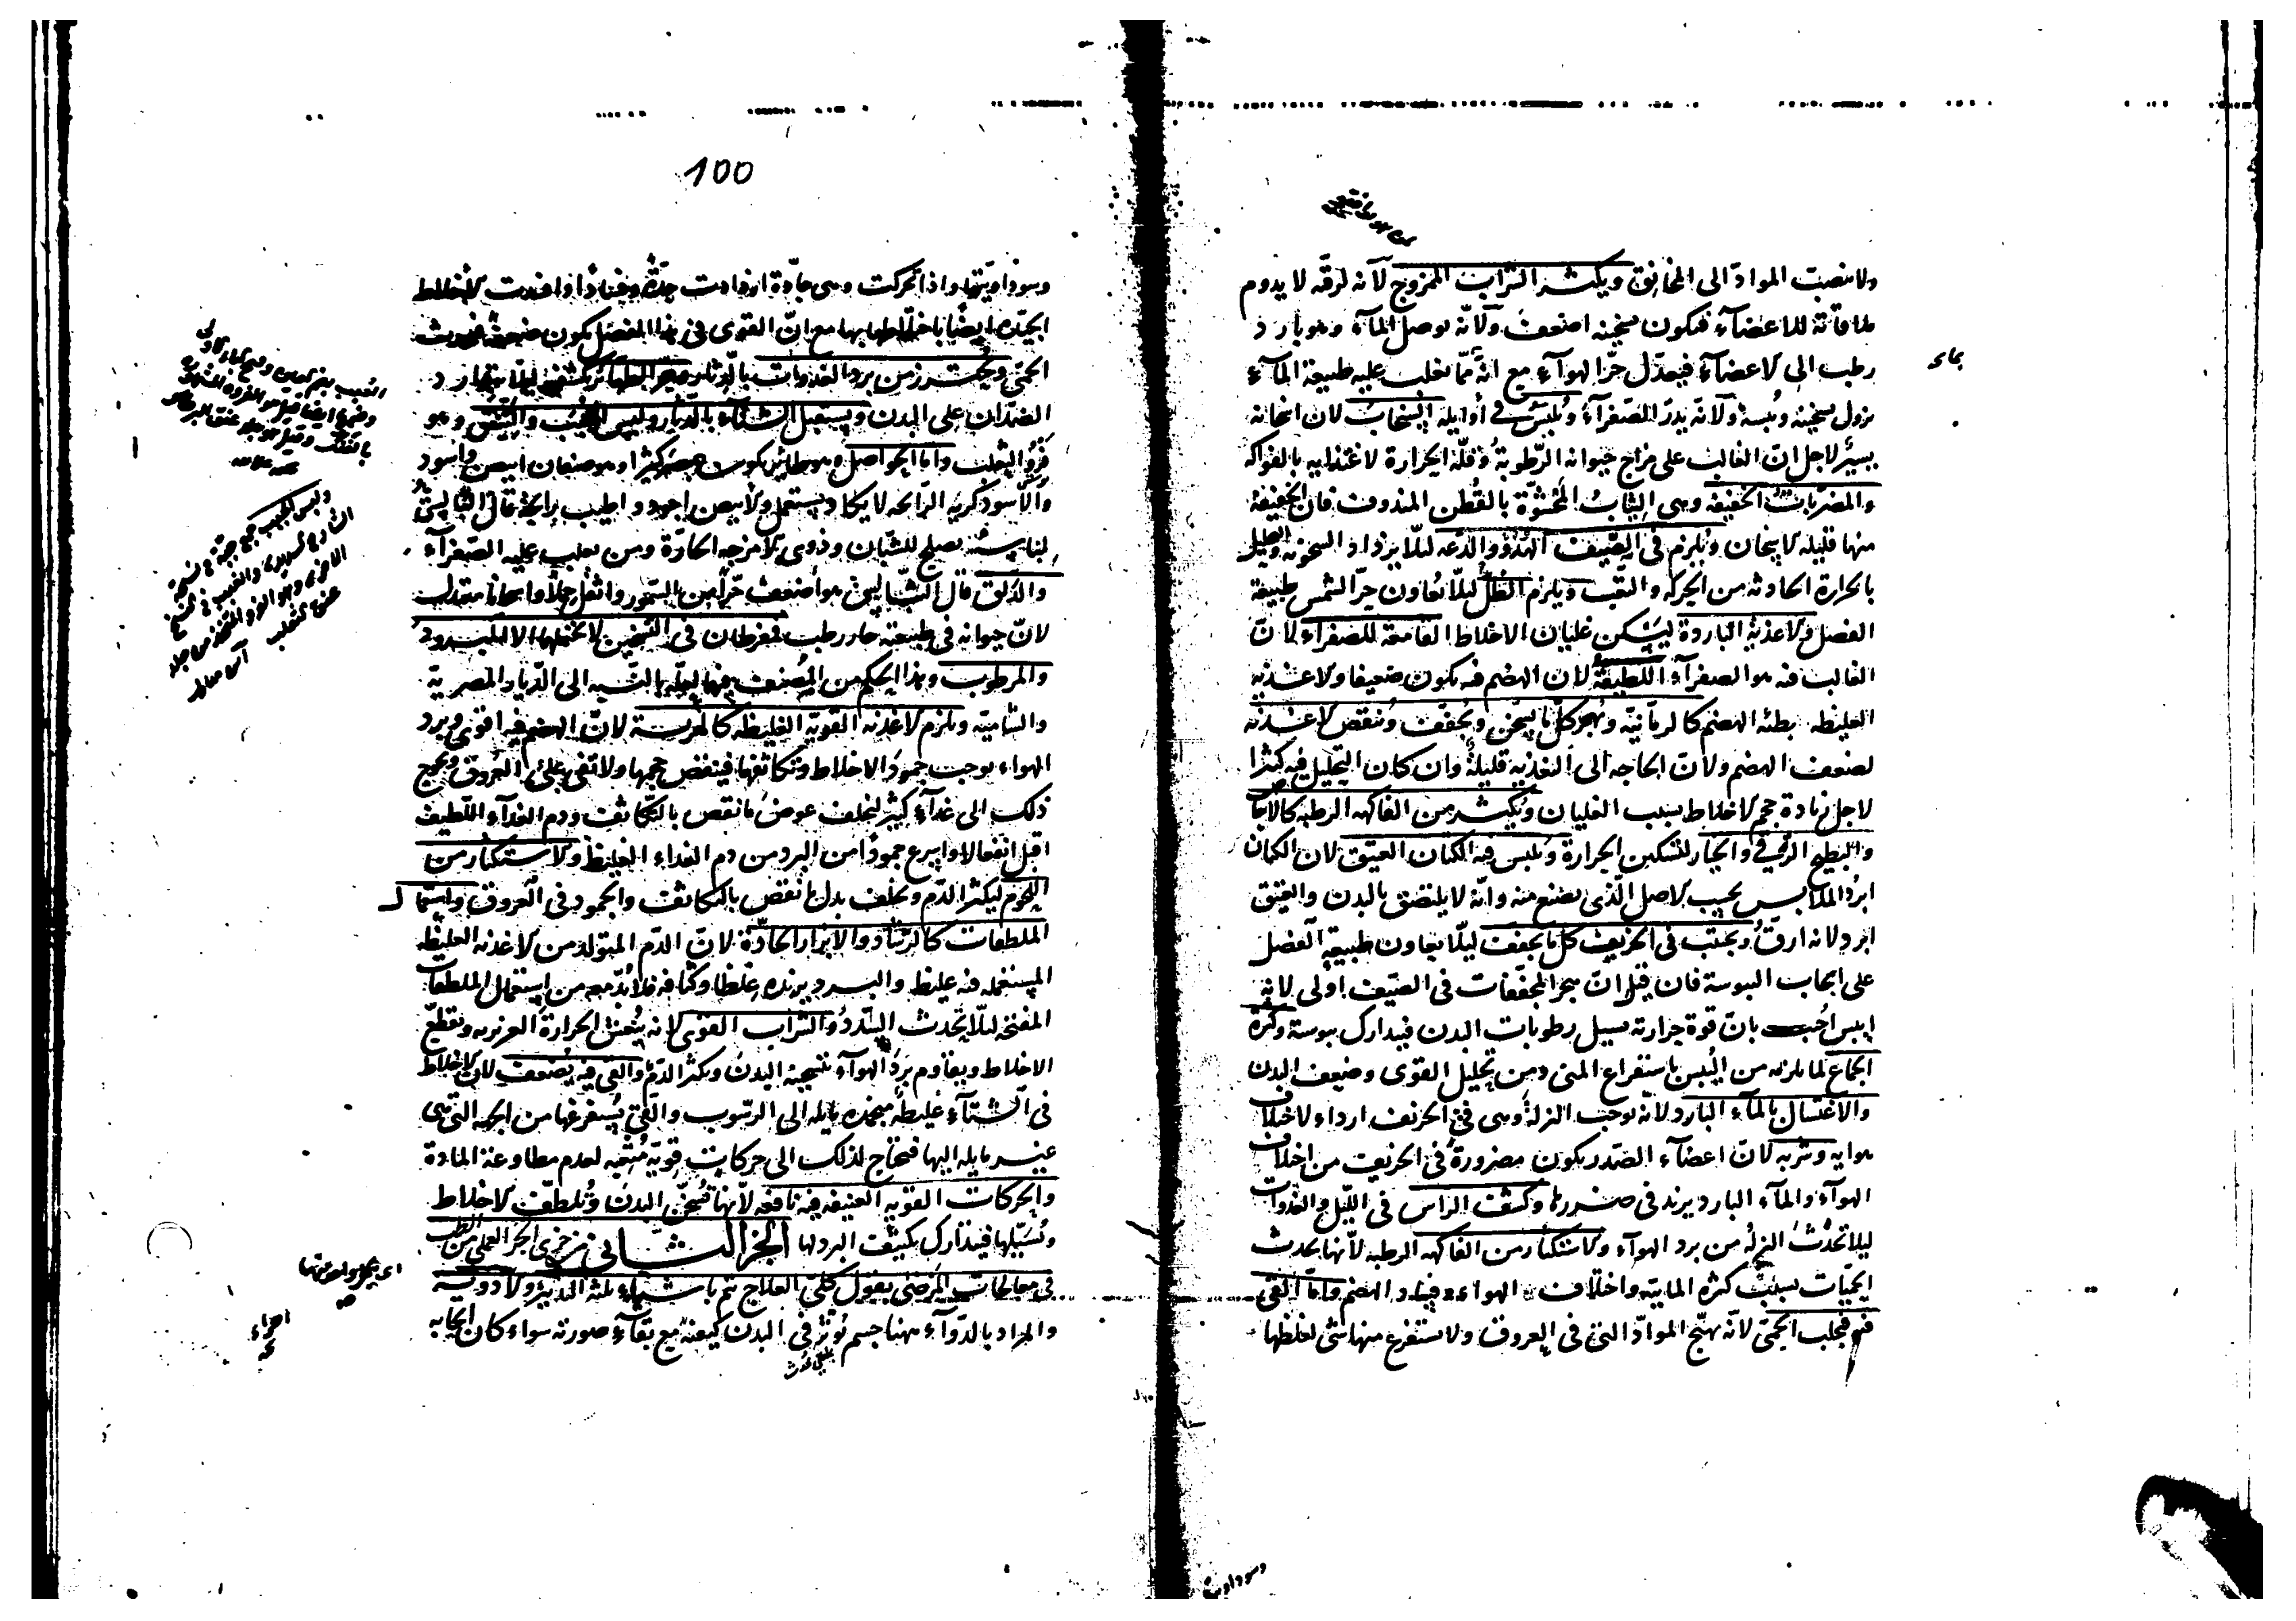 ولا تنصب المواد الى المخانيق ويكثر الشراب الممزوج لانه لرقته لا يدوم
ملاقاته للاعضآء فيكون تسخينه اضعف ولانه يوصل المآء وهو بارد
رطب الى الاعضآء فيعدل حر الهوآء مع انه مما تغلب عليه طبيعة المآء
يزول تسخينه ويبسه ولانه يدر الصفرآء ويلبس في أوايله السنجاب لان اسخانه
يسير لاجل ان الغالب على مزاج حيوانه الرطوبة وقلة الحرارة لاغتذايه بالفواكه
والمضربات الخفيفة وهى الثياب المحشوة بالقطن المندوف فان الخفيفة
منها قليله الاسخان ويلزم فى الصيف الهدؤ والدعه ليلا يزداد السخونه والتحليل
بالحرارة الحادثه من الحركه والتعب ويلزم الظل ليلا يعاون حر الشمس طبيعة
الفصل والاغذية الباردة ليسكن غليان الاخلاط القامعة للصفراء لان
الغالب فيه هو الصفرآء اللطيفة لان الهضم فيه يكون ضعيفا والاغذيه
الغليظه بطئه الهضم كالرمانيه ويهجر كل ما يسخن ويجفف وينقص الاغذيه
لضعف الهضم ولان الحاجه الى التغذيه قليلة وان كان التحليل فيه كثيرا
لاجل زيادة حجم الاخلاط بسبب الغليان ويكثر من الفاكهه الرطبه كالاجاص
والبطيخ الرقى والخيار لتسكين الحرارة ويلبس فيه الكتان العتيق لان الكتان
ابرد الملابس بحسب الاصل الذى يصنع منه وانه لا يلتصق بالبدن والعتيق
ابرد لانه ارق ويجتنب فى الخريف كل ما يجفف ليلا يعاون طبيعة الفصل
على ايجاب اليبوسة فان قيل ان هجر المجففات فى الصيف اولى لانه
ايبس اجيب بان قوة حرارته تسيل رطوبات البدن فيدارك يبوسته وكثرة
الجماع لما يلزمه من اليبس باستفراغ المنى ومن تحليل القوى وضعف البدن
والاغتسال بالمآء البارد لانه يوجب النزلة وهى فى الخريف ارداء لاختلاف
هوايه وشربه لان اعضآء الصدر يكون مضرورة فى الخريف من اختلاف
الهوآء والمآء البارد يزيد فى ضررها وكشف الراس فى الليل والغدوات
ليلا تحدث النزلة من برد الهوآء والاستكثار من الفاكهه الرطبه لانها يحدث
الحميات بسبب كثرة المائية واختلاف الهواء وفساد الهضم واما القى
فيه فيجلب الحمى لانه يهيج المواد التى فى العروق ولا يستفرغ منها شى لغلظها
وسوداويتها
100
وسوداويتها واذا تحركت وهى حادة ازدادت حدة وفسادا وافسدت الاخلاط
الجيده ايضا باختلاطها بها مع ان القوى فى هذا الفصل يكون ضعيفة فيحدث
الحمى ويحترز من برد الغدوات بالدثار وحر الظهاير بكشفه ليلا يتوارد
الضدان على البدن ويستقبل الشتآء بالدثار ولبس الجبب والنيفق وهو
فرو الثعلب واما الحواصل وهو طائر يكون بمصر كثيرا وهو صنفان ابيض واسود
والاسود كريه الرائحه لا يكاد يستعمل والابيض اجود واطيب رايحة قال الشاليسى
لباسه يصلح للشبان وذوى الامزجه الحارة ومن يغلب عليه الصفرآء
والدلق قال الشاليسى هو أضعف حرا من السمور واثقل حملا واسخانه معتدل
لان حيوانه فى طبيعته حار رطب فمفرطان فى التسخين لا يحتملها الا المبرود
والمرطوب وهذا الحكم من المصنف فيها لعله بالنسبه الى الديار المصرية
والشاميه ويلزم الاغذيه القويه الغليظه كالهريسة لان الهضم فيه اقوى وبرد
الهواء يوجب جمود الاخلاط وتكاثفها فينقص حجمها ولا تفى بملئ العروق ويحوج
ذلك الى غذآء كثير ليخلف عوض ما نقص بالتكاثف ودم الغذآء اللطيف
اقبل انفعالا واسرع جمودا من البرد من دم الغذاء الغليظ والاستكثار من
اللحوم ليكثر الدم ويخلف بدل ما نقص بالتكاثف والجمود فى العروق واستعمال
الملطفات كالرشاد والابزار الحادة لان الدم المتولد من الاغذيه الغليظه
المستعمله فيه غليظ والبرد يزيده غلظا وكثافه فلا بد معه من استعمال الملطفات
المفتحه ليلا تحدث السدد والشراب القوى لانه ينعش الحرارة الغريزيه ويقطع
الاخلاط ويقاوم برد الهوآء بتسخينه البدن ويكثر الدم والقى فيه يضعف لان الاخلاط
فى الشتآء غليظة منجمده مايله الى الرسوب والقى يستفرغها من الجهه التى هى
غير مايله اليها فيحتاج لذلك الى حركات قوية متعبه لعدم مطاوعة المادة
والحركات القويه العنيفه فيه نافعه لانها تسخن البدن وتلطف الاخلاط
وتسيلها فيتدارك تكثيف البرد لها الجزء الثانى من جزءى الجزء العملى من الطب
فى معالجات المرضى بقول كلى العلاج يتم باشياء ثلثة التدبير والادويه
والمراد بالدوآء ههنا جسم يوثر فى البدن كيفية مع بقآء صورته سواء كان ايجابه